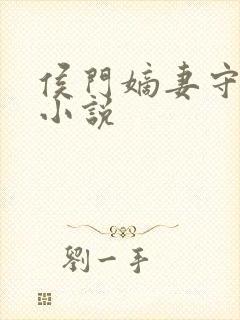 侯門嫡妻守
小説
劉一手